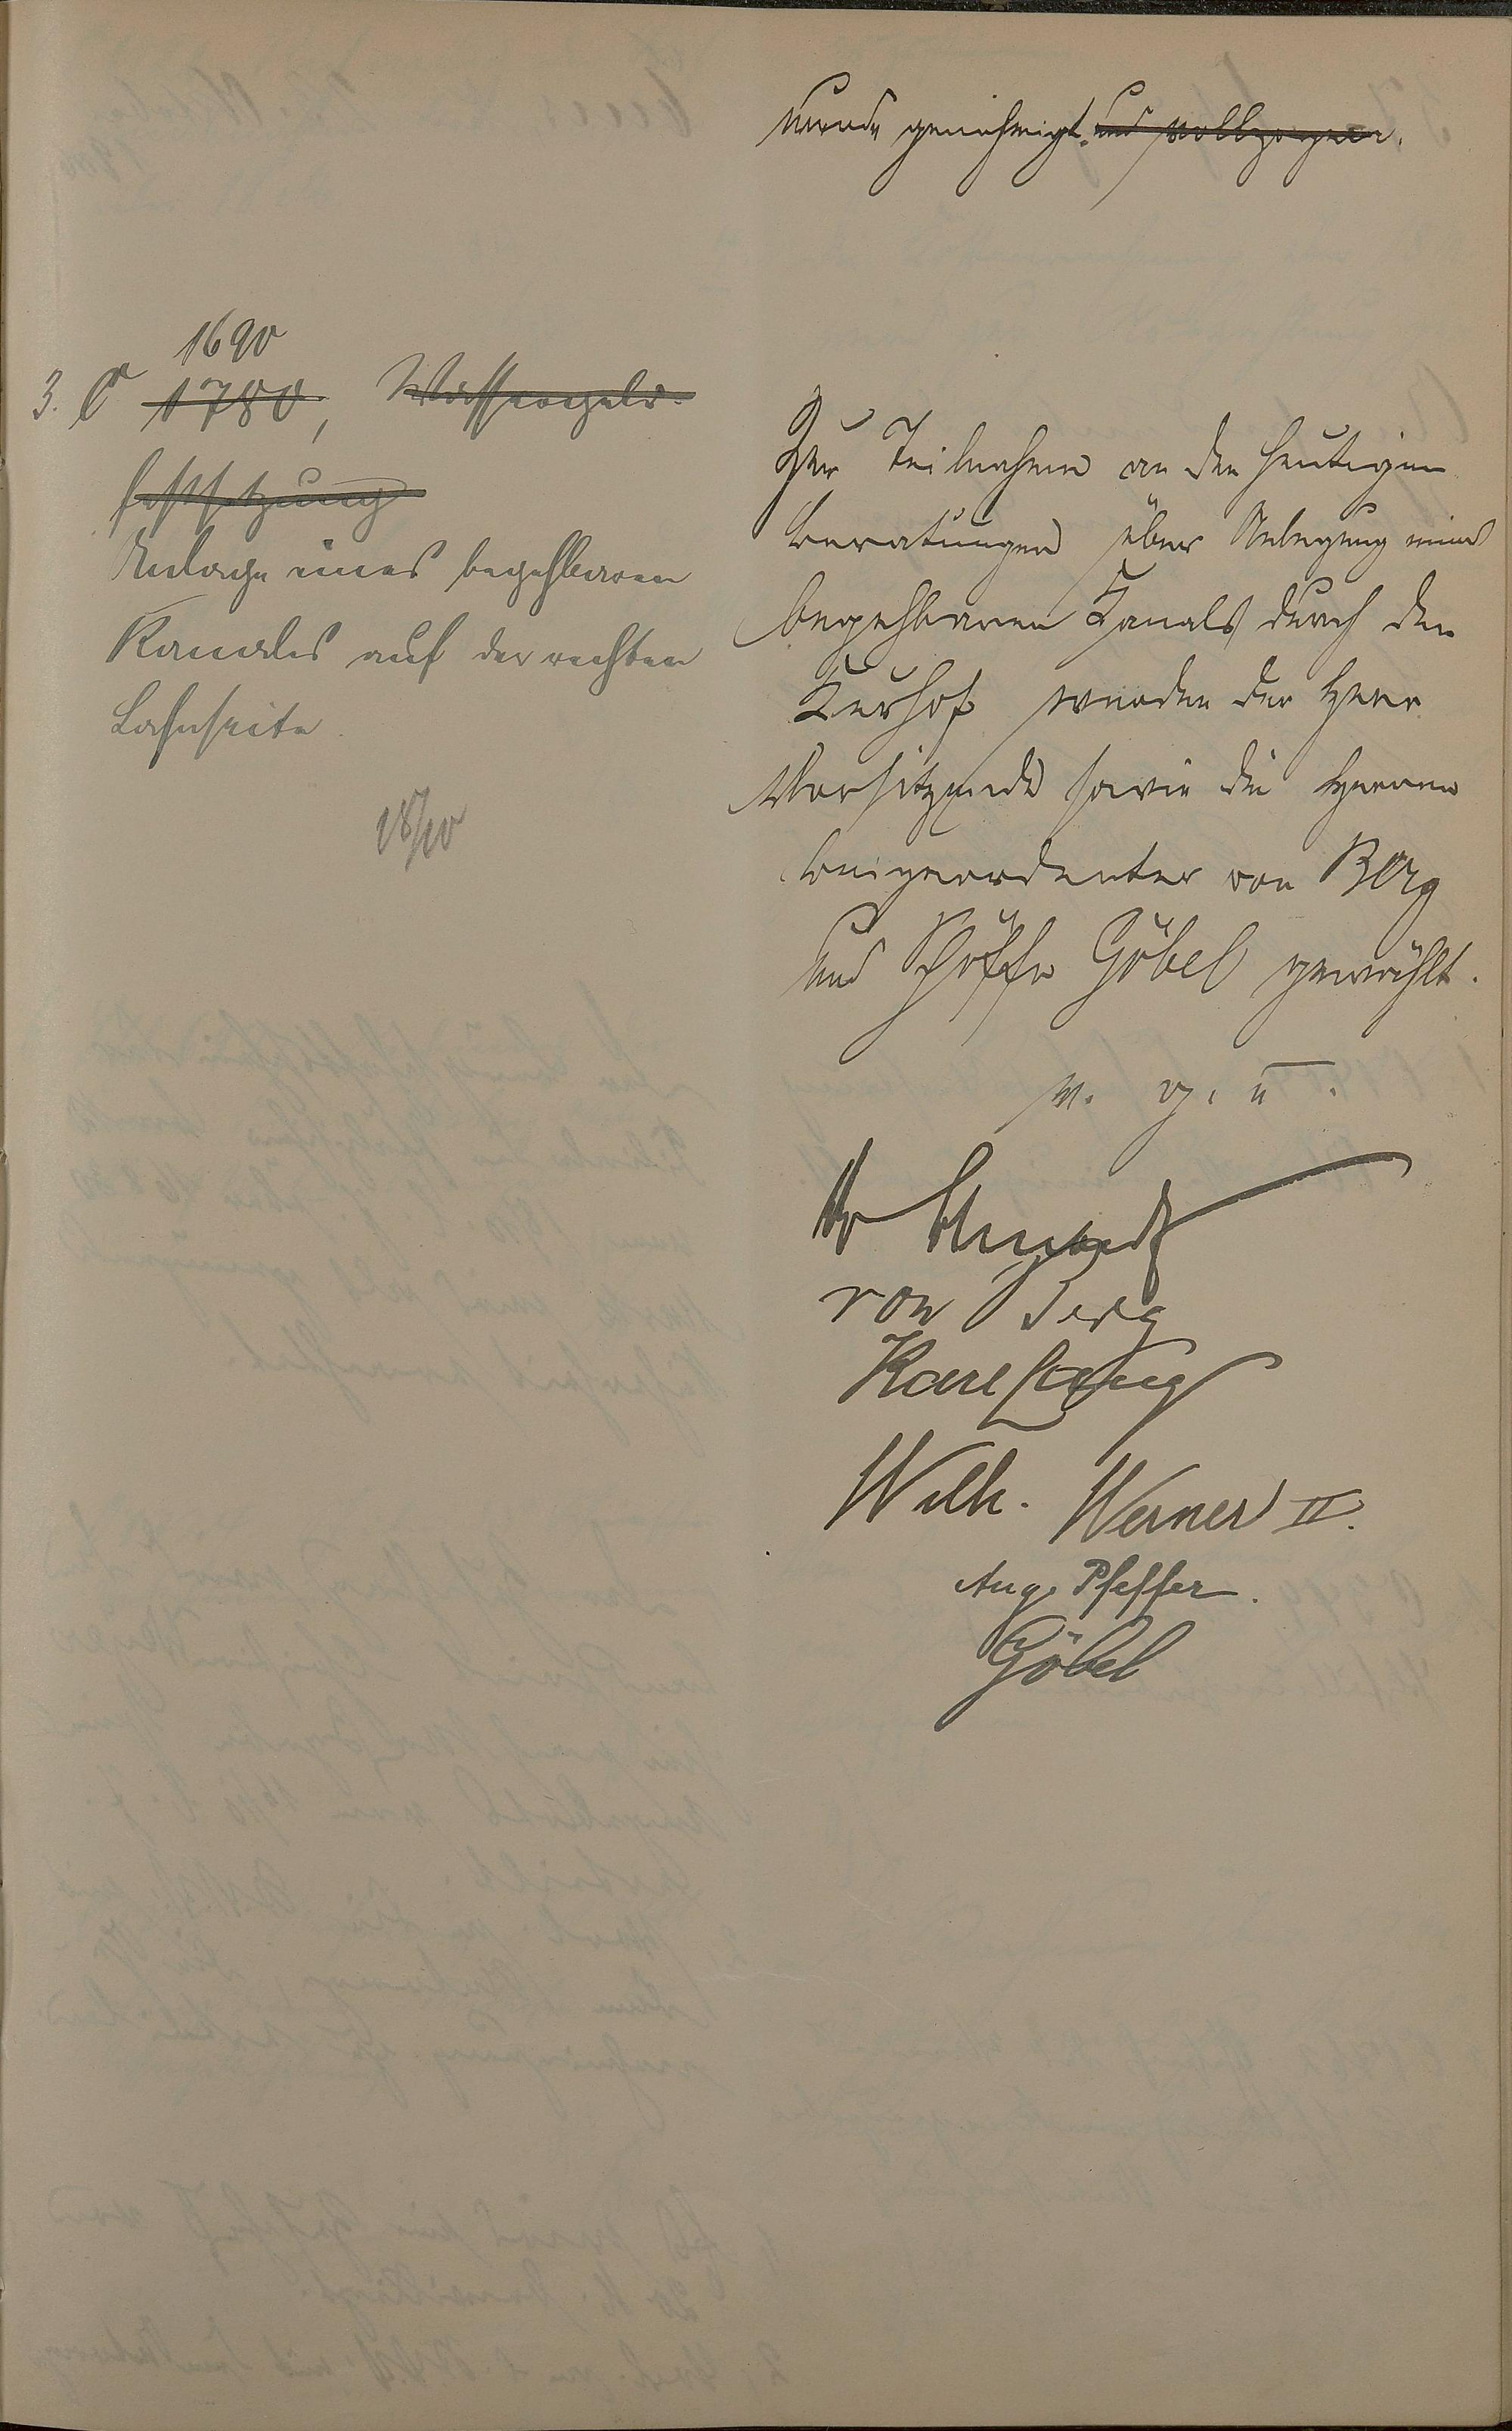 wurde genehmigt. und vollzogen.
1690
3. C 1780, Wassergeld-
festsetzung
Anlage eines begehbaren
Kanales auf der rechten
Lahnseite.
18/10
Zur Teilnahme an den heutigen
Beratungen über Anlegung eines
begehbaren Kanals durch den
Kurhof wurden der Herr
Vorsitzende sowie die Herren
Beigeordneter von Berg
und Schöffe Göbel gewählt.
v. g. u.
von Berg
Karl Lang
Wilh. Werner II.
Aug. Pfeffer.
Göbel